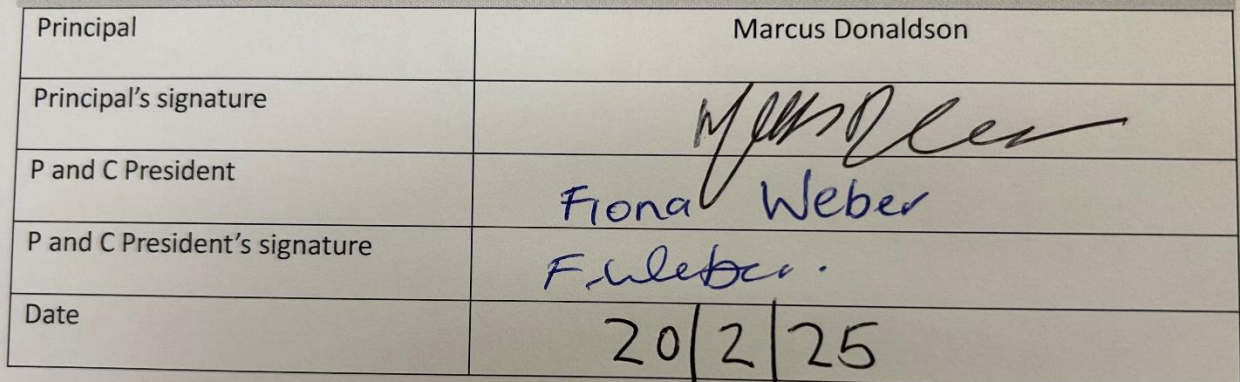 Principal Marcus Donaldson
Principal's signature
P and C President Fiona Weber
P and C President's signature F. Weber.
Date 20/2/25